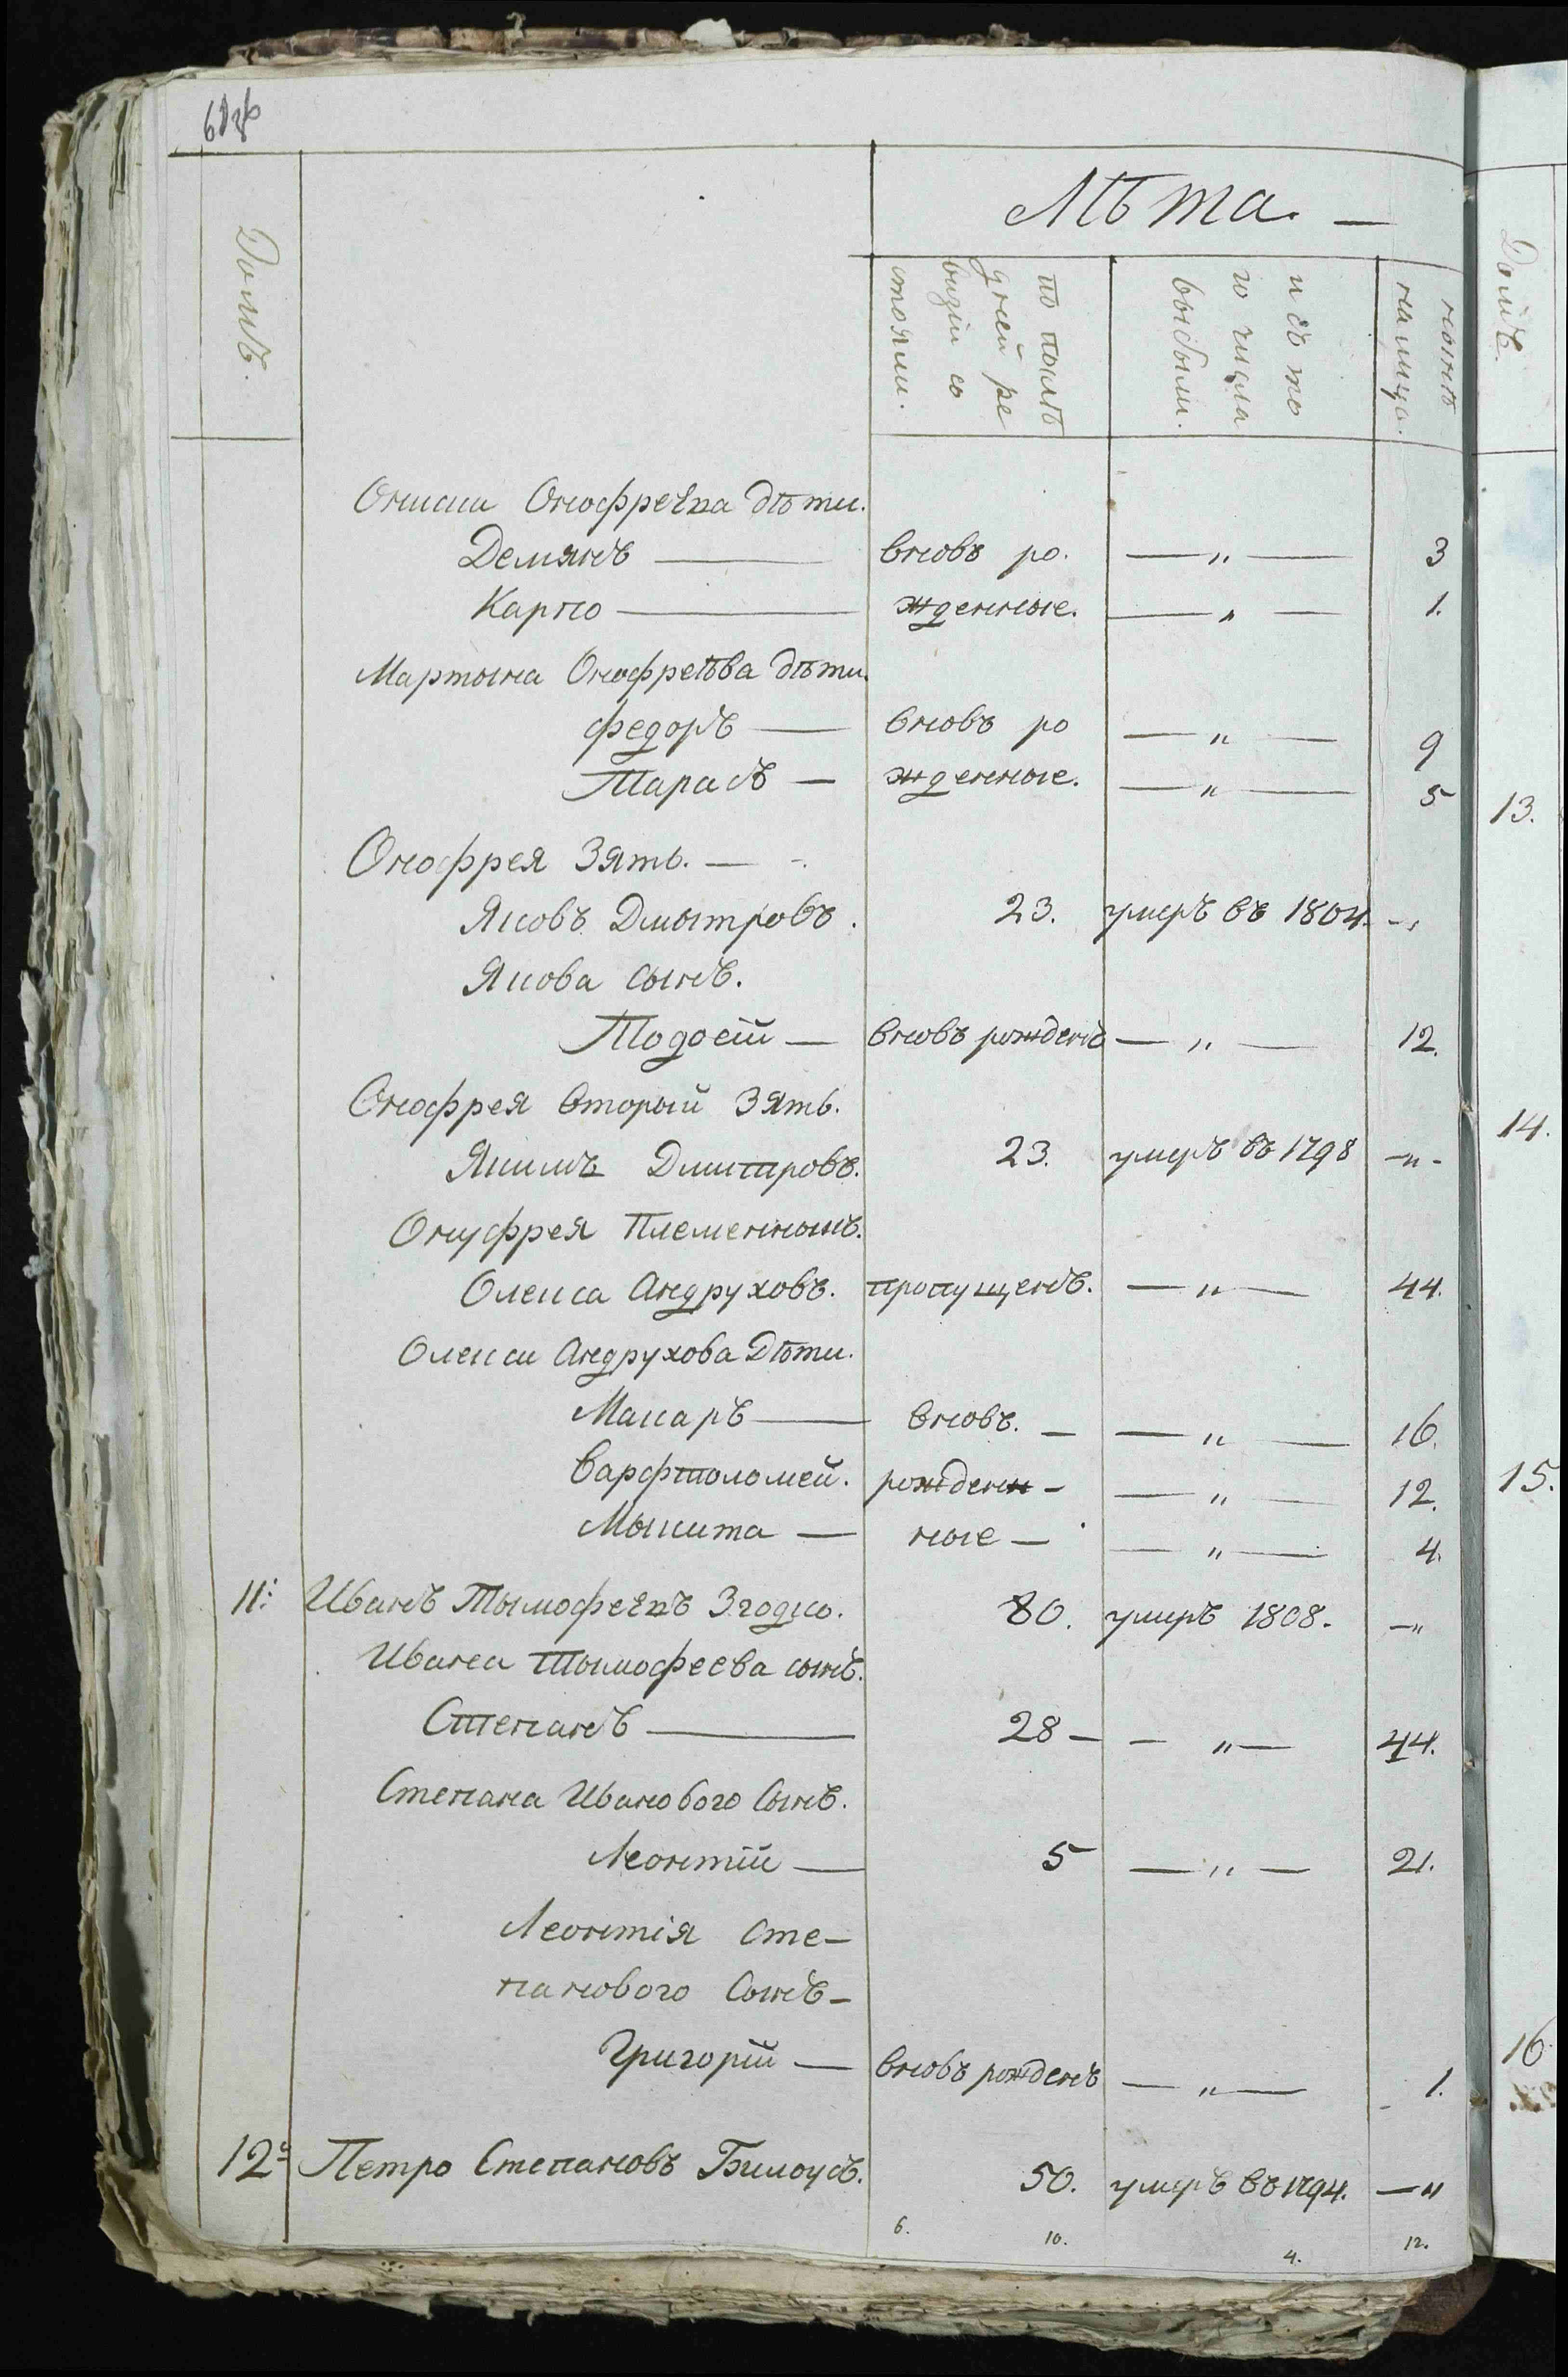 Домъ.
Лѣта. —
по послѣ
дней ре
визіи со
стояли.
изъ то
го числа
выбыли.
нынѣ
на лицо.
Домъ.
Онофреева дѣти.
Демянъ — вновь ро. — „ — 3
Карпо — жденные. — „ — 1.
Мартына Онофреѣва дѣти.
Федоръ — вновь ро — „ — 9
Тарасъ — жденные. — „ — 5
13.
Онофрея Зять. —
Яковъ Дмытровъ. 23. умеръ въ 1804. - „
Якова сынъ.
Тодосій — вновь рожденъ — „ — 12.
Онофрея вторый Зять.
14.
Якимъ Дмитровъ. 23. умеръ въ 1798 -„-
Онуфрея Племенныкъ.
Олекса Андруховъ. пропущенъ. — „ — 44.
Олексы Андрухова Дѣти.
Макаръ — вновь. — — „ — 16.
Варфтоломей. рожденн - — „ — 12.
15.
Мыкита — ные — — „ — 4.
11. Иванъ Тымофеевъ Згодко. 80. умеръ 1808. —„
Ивана Тымофеева сынъ.
Степанъ — 28 — — „ — 44.
Степана Иванового Сынъ.
Леонтій — 5 — „ — 21.
Леонтія Сте-
панового Сынъ —
Григорій — вновь рожденъ — „ — 1.
16
12. Петро Степановъ Билоусъ. 50. умеръ въ 1794. — „
6. 10. 4. 12.